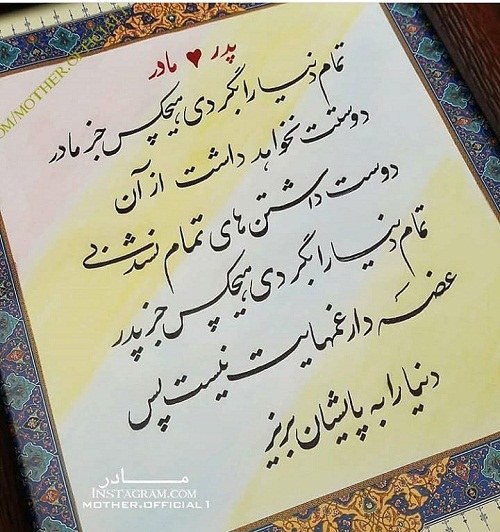 پدر ♥ مادر
تمام دنیا را بگردی هیچکس جز مادر
دوستت نخواهد داشت از آن
دوست داشتن های تمام نشدنی
تمام دنیا را بگردی هیچکس جز پدر
غصه دار غمهایت نیست پس
دنیا را به پایشان بریز
مادر
INSTAGRAM.COM
MOTHER.OFFICIAL1
OM/MOTHER.OFFICIAL